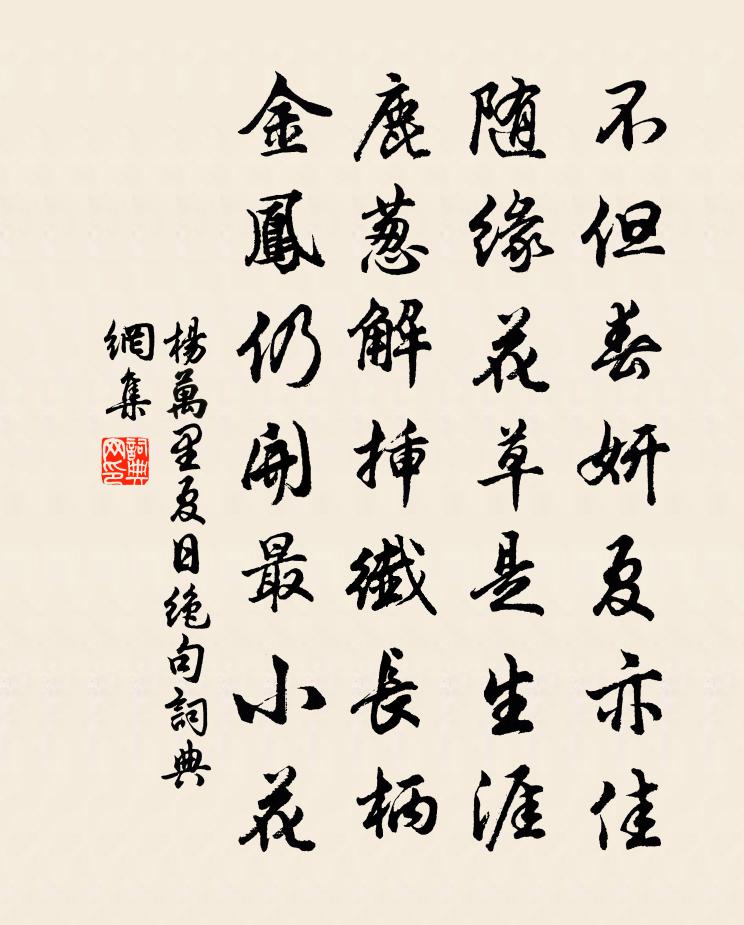 不但春妍夏亦佳
随緣花草是生涯
鹿葱解插纖長柄
金鳳仍開最小花
楊萬里夏日絶句詞典
網集
詞典
网印